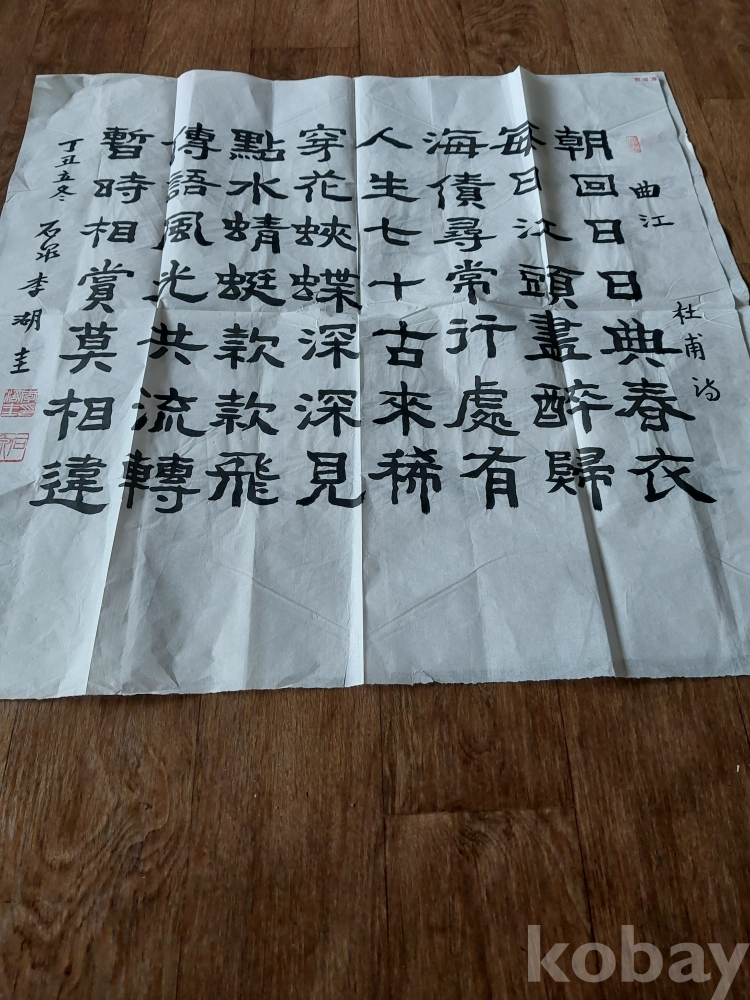 曲江
杜甫诗
朝回日日典春衣
每日江頭盡醉歸
海債尋常行處有
人生七十古來稀
穿花蛺蝶深深見
點水蜻蜓款款飛
傳語風光共流轉
暫時相賞莫相違
丁丑立冬
石泉 李湖圭
kobay